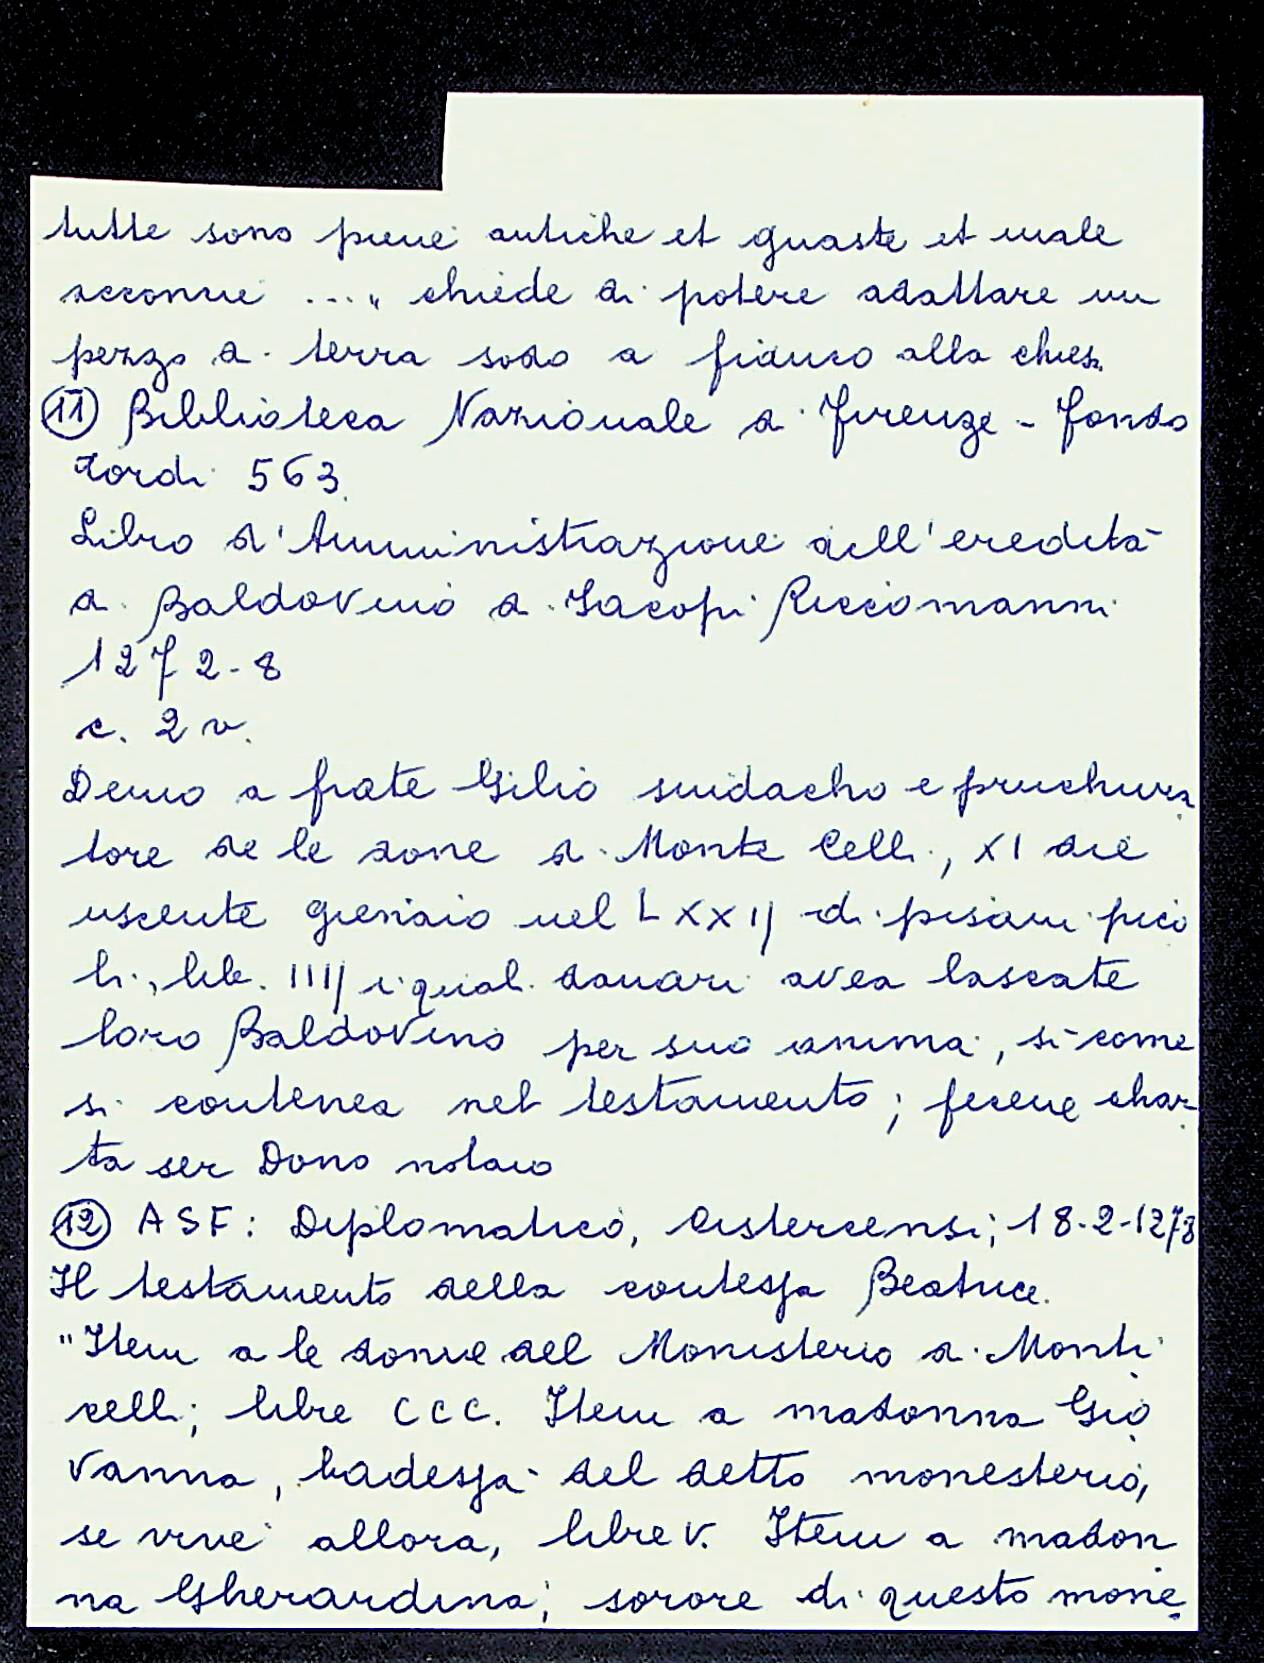 tutte sono piene antiche et guaste et male
acconcie ...." chiede di potere adattare un
pezzo di terra sodo a fianco alla chies.
(11) Biblioteca Nazionale di Firenze - Fondo
Tordi 563.
Libro d'Amministrazione dell'eredità
di Baldovino di Iacopi Riccomanni
1272-8
c. 2 v.
Demo a frate Gilio suidacho e pruchura
tore de le done di Monte Celli, XI die
uscente gienaio nel LXXIJ di pisani picio
li, lib. IIIJ i quali danari avea lasciate
loro Baldovino per suo anima, sì come
si contenea nel testamento; fecene char-
ta ser Dono notaio
(12) ASF: Diplomatico, Cistercensi; 18-2-1278
Il testamento della contessa Beatrice.
"Item a le donne del Monisterio di Monti
celli; libre CCC. Item a madonna Gio
vanna, badessa del detto monesterio,
se vive allora, libre V. Item a madon
na Gherardina; sorore di questo mone